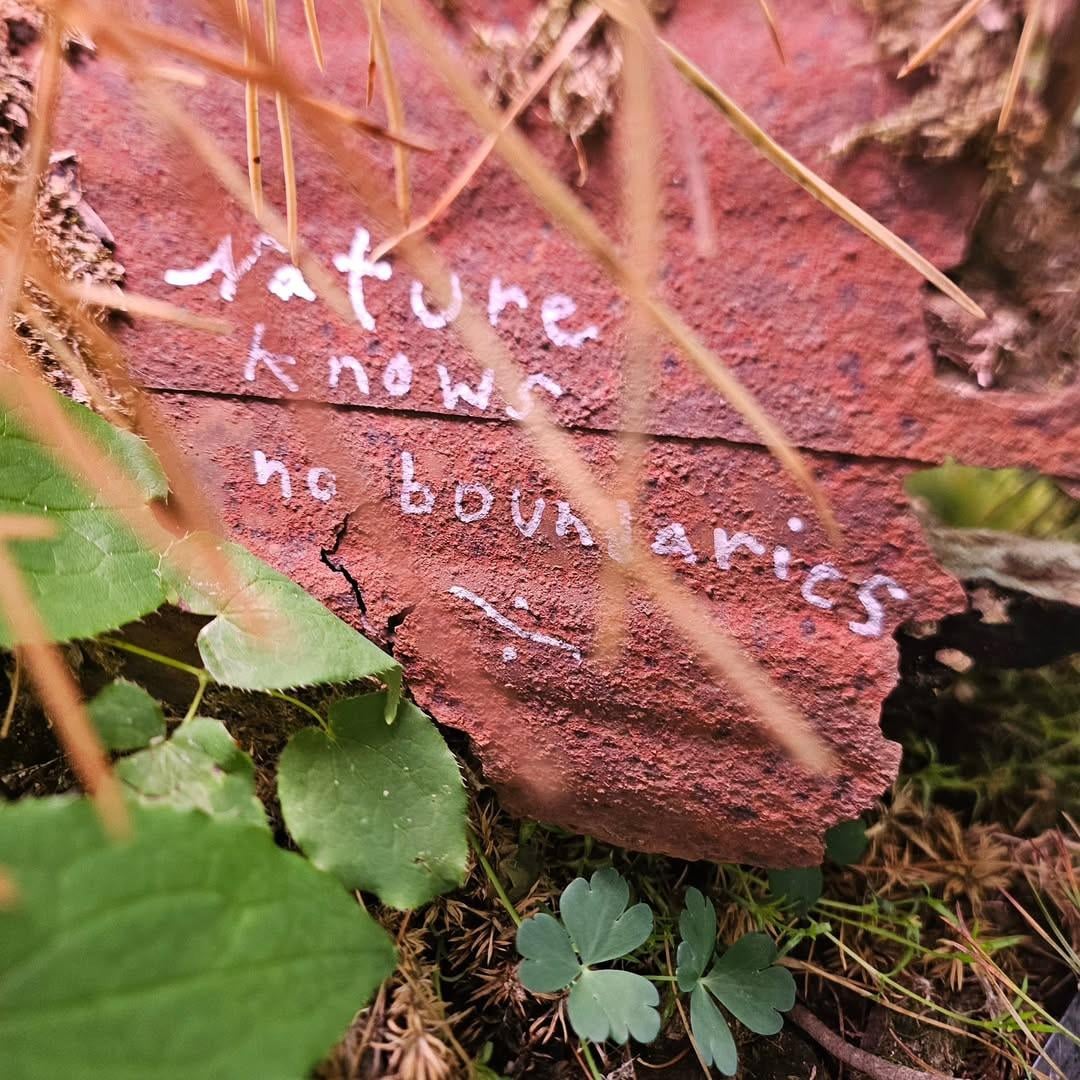 Nature
knows
no boundaries